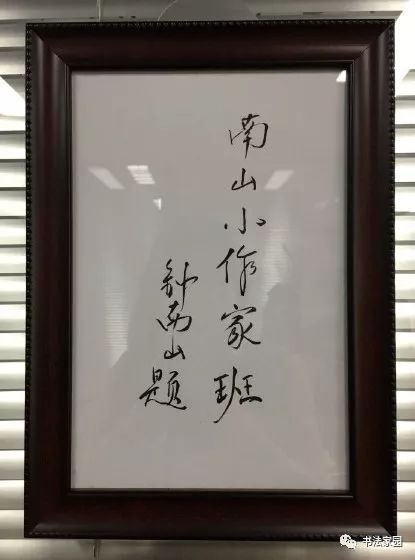 南山小作家班
钟南山题
书法家园